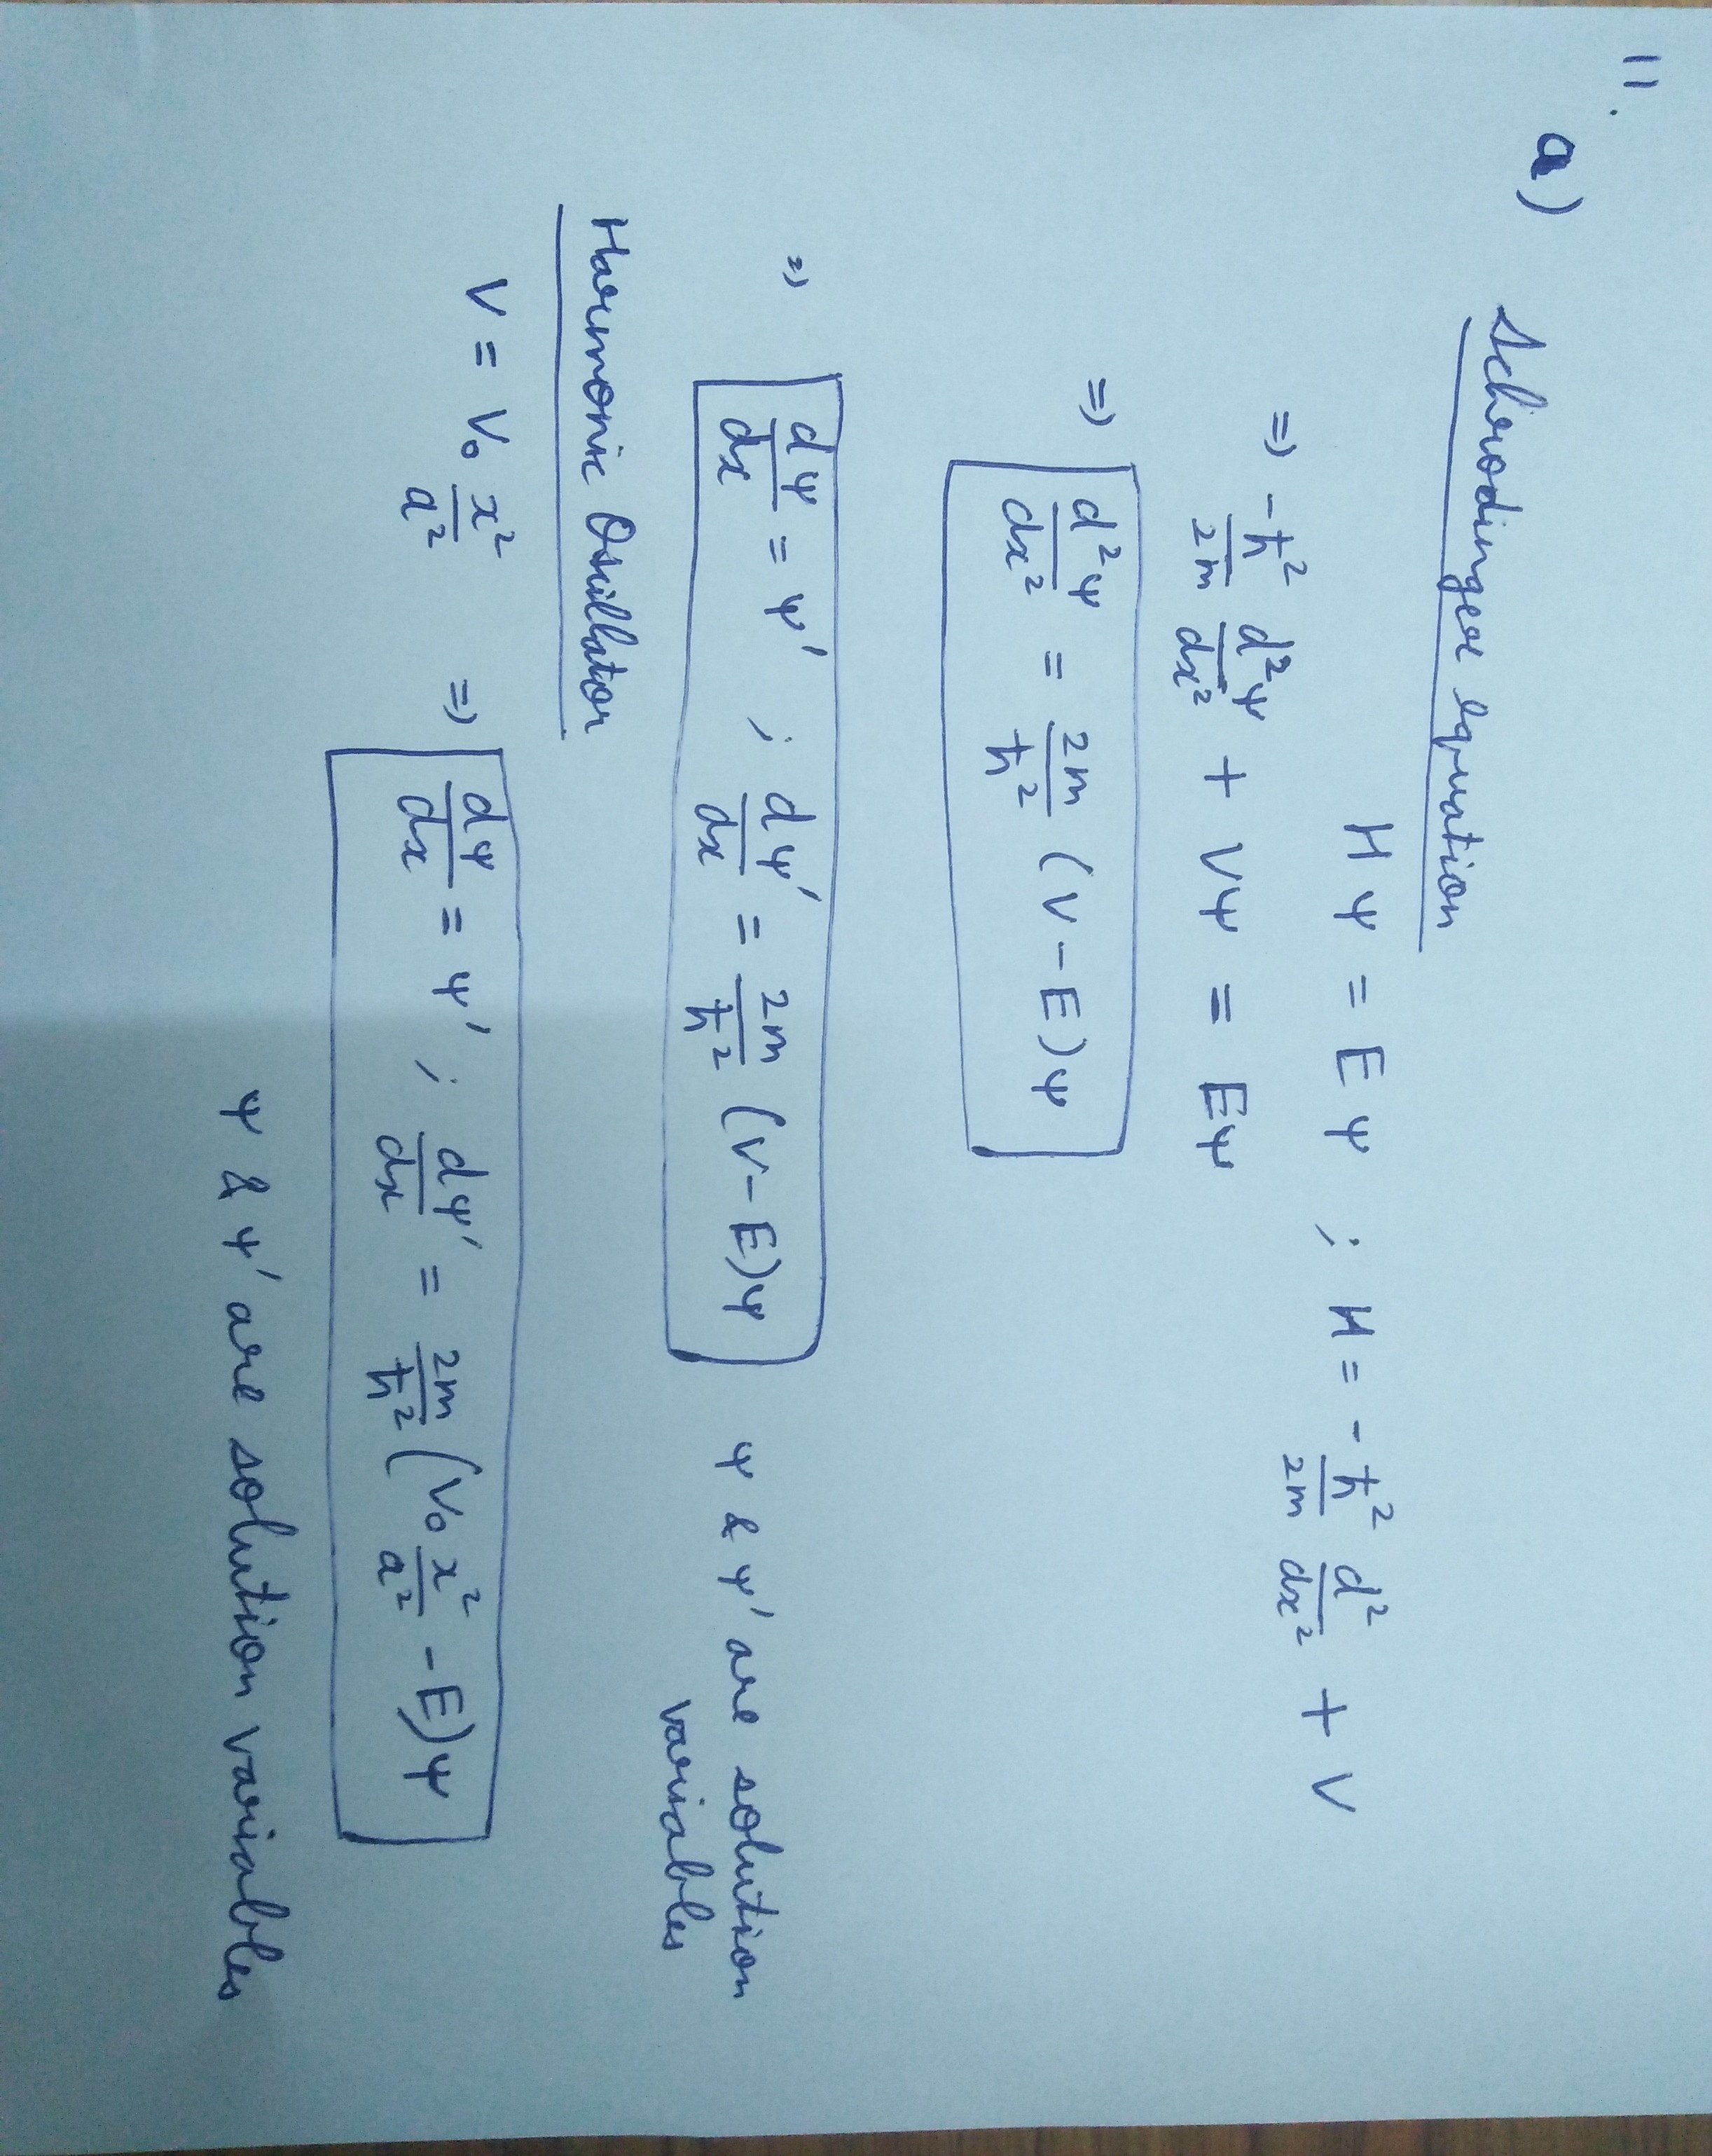 11.
a)
Schrodinger equation
Hψ = Eψ ; H = -ħ²/2m d²/dx² + V
=> -ħ²/2m d²ψ/dx² + Vψ = Eψ
=> d²ψ/dx² = 2m/ħ² (V-E)ψ
=> dψ/dx = ψ' ; dψ'/dx = 2m/ħ² (V-E)ψ ψ & ψ' are solution
variables
Harmonic Oscillator
V = V₀ x²/a² => dψ/dx = ψ' ; dψ'/dx = 2m/ħ² (V₀ x²/a² - E)ψ
ψ & ψ' are solution variables